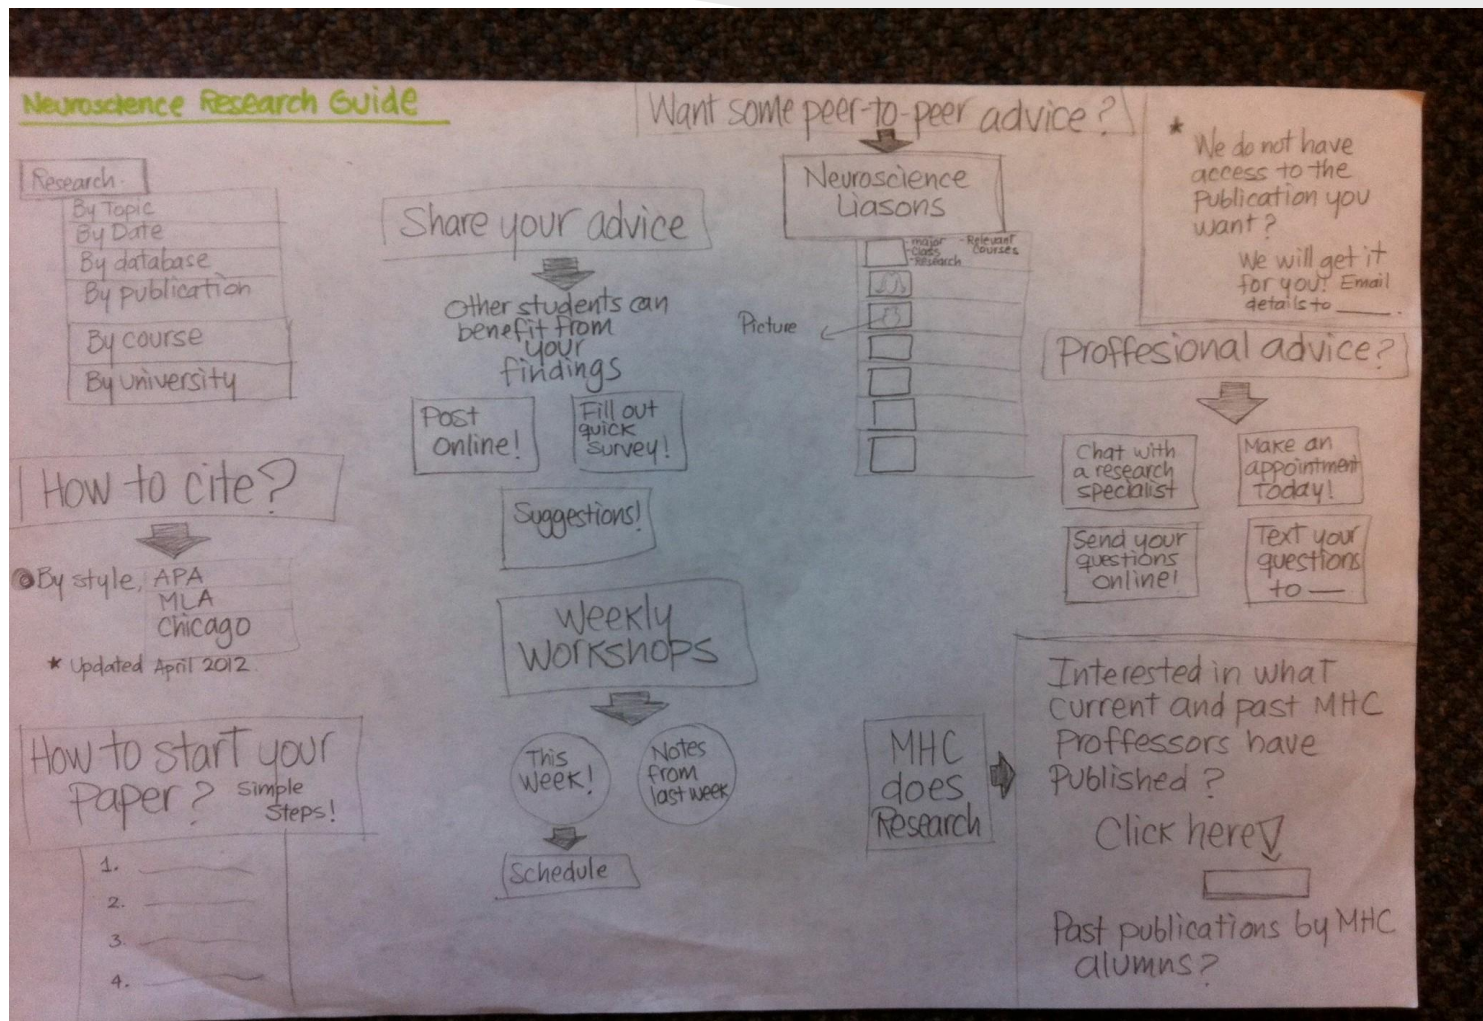 Neuroscience Research Guide
Research
By Topic
By Date
By database
By publication
By course
By university
How to cite?
By style, APA
MLA
Chicago
* Updated April 2012.
How to start your
Paper? Simple
Steps!
1.
2.
3.
4.
Share your advice
Other students can
benefit from
your
findings
Post
Online!
Fill out
quick
survey!
Suggestions!
Weekly
Workshops
This
Week!
Notes
from
last week
Schedule
Want some peer-to-peer advice?
Neuroscience
Liasons
-major
-Class
-Research
-Relevant
Courses
Picture
* We do not have
access to the
Publication you
want?
We will get it
for you! Email
details to ____.
Proffesional advice?
Chat with
a research
specialist
Make an
appointment
Today!
Send your
questions
online!
Text your
questions
to __
MHC
does
Research
Interested in what
current and past MHC
Proffessors have
Published?
Click here
Past publications by MHC
alumns?